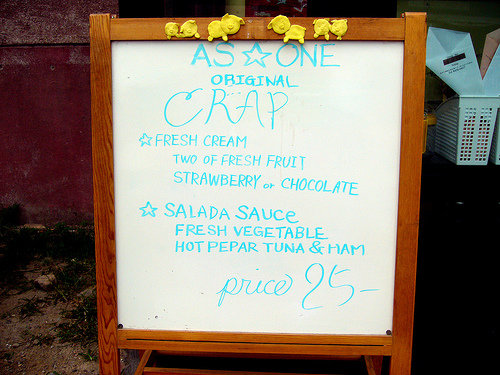 AS ☆ ONE
ORIGINAL
CRAP
☆ FRESH CREAM
TWO OF FRESH FRUIT
STRAWBERRY or CHOCOLATE
☆ SALADA SAUCe
FRESH VEGETABLE
HOT PEPAR TUNA & HAM
price 25-